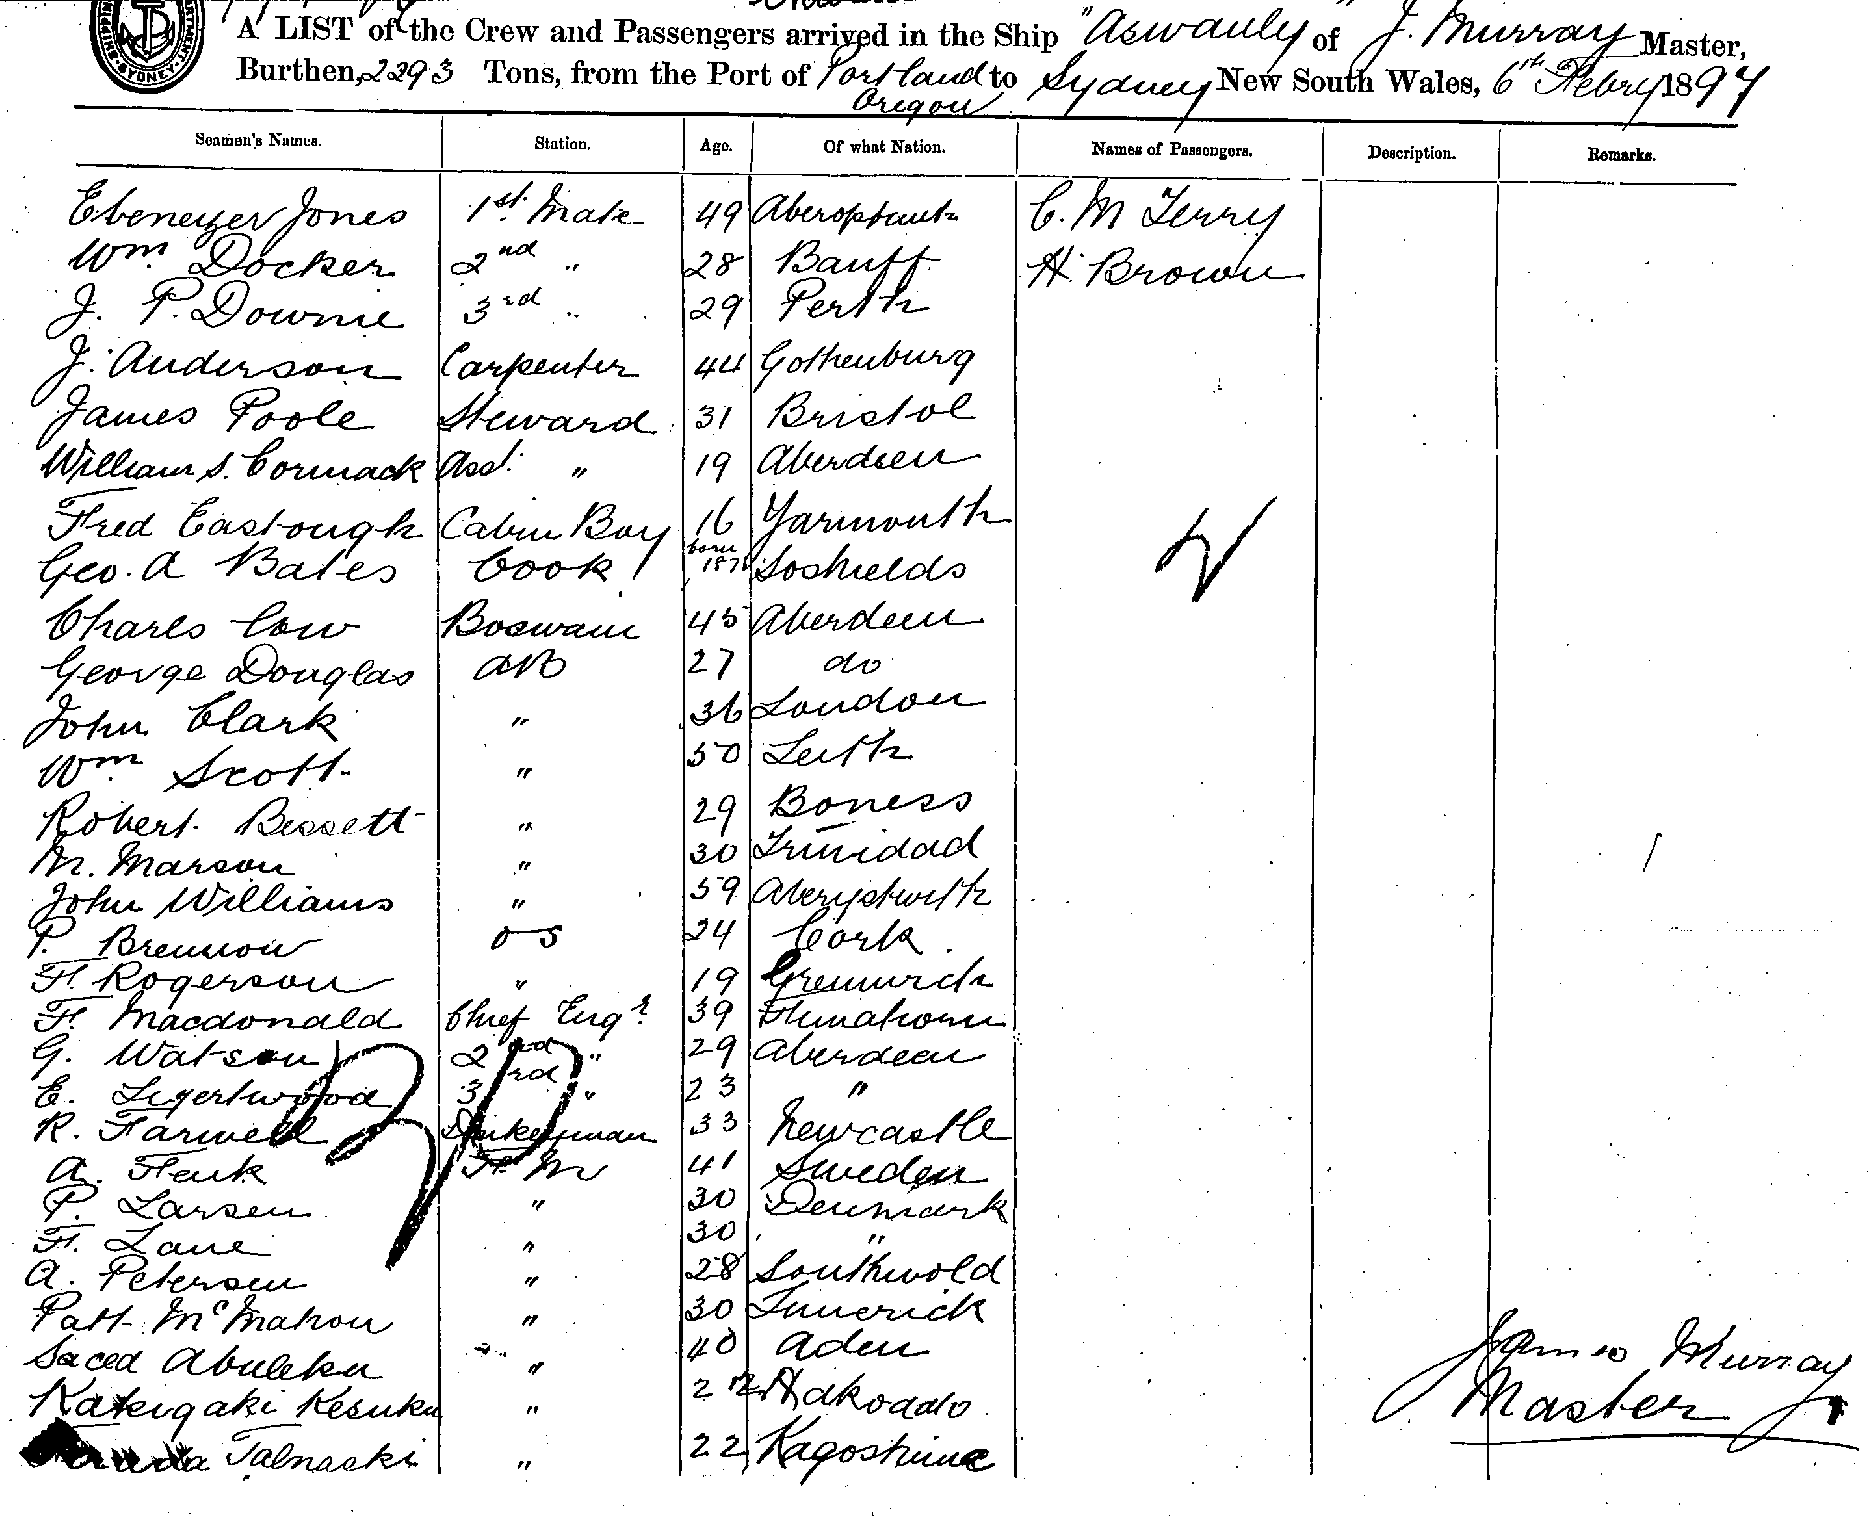 A LIST of the Crew and Passengers arrived in the Ship "Aswanly" of J. Murray Master,
Burthen, 2293 Tons, from the Port of Portland to Sydney New South Wales, 6th Febry 1897
Oregon
Seamen's Names. Station. Age. Of what Nation. Names of Passengers. Description. Remarks.
Ebenezer Jones 1st Mate 49 C. M Terry
Wm Docker 2nd " 28 Banff H Brown
J. P. Downie 3rd " 29 Perth
J. Anderson Carpenter 44 Gothenburg
James Poole Steward 31 Bristol
William S. Cormack Asst. " 19 Aberdeen
Fred Eastough Cabin Boy 16 Yarmouth
Geo. A Bates Cook born Soshields
Charles Cow Boswain 45 Aberdeen
George Douglas AB 27 do
John Clark " 36 London
Wm Scott " 50 Leith
Robert Bessett " 29 Boness
M. Marson " 30 Trinidad
John Williams " 59 Aberystwith
P. Brennon OS 24 Cork
F. Rogerson " 19 Greenwich
F. Macdonald Chief Engr 39
G. Watson 2nd " 29 Aberdeen
E. Ligertwood 3rd " 23 "
R. Farwell Donkeyman 33 Newcastle
A. Fenk F. M 41 Sweden
P. Larsen " 30 Denmark
F. Lane " 30 "
A. Petersen " 28 Southwold
Patt McMahon " 30 Limerick
Saeed Abuleku " 40 Aden
Katergaki Kesuku " Hakoddo
Talnaski " 22 Kagoshima
James Murray
Master